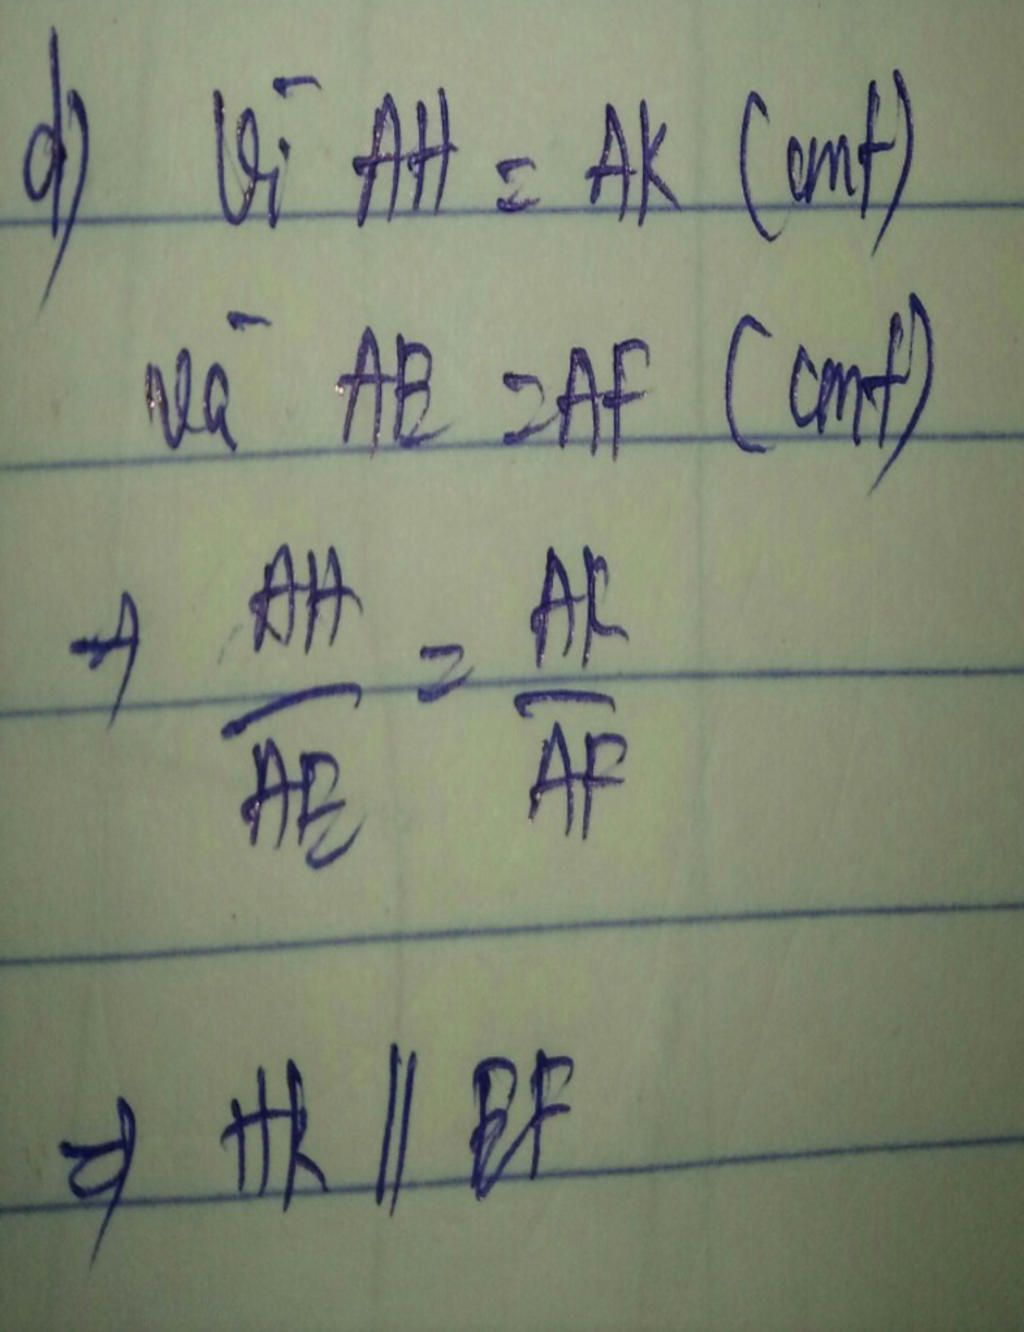 d) Vì AH = AK (cmt)
và AE = AF (cmt)
→ AH/AE = AK/AF
⇒ HK // EF